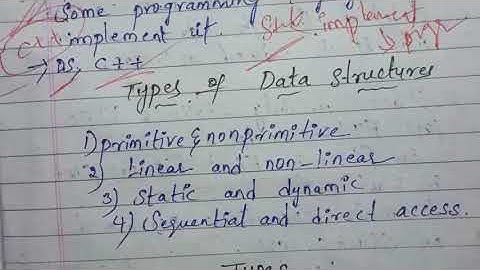 Some programming
C++ implement it.
Stk implement
→ DS, C++
Types of Data Structures
1) primitive & nonprimitive
2) Linear and non-linear
3) Static and dynamic
4) Sequential and direct access.
Types